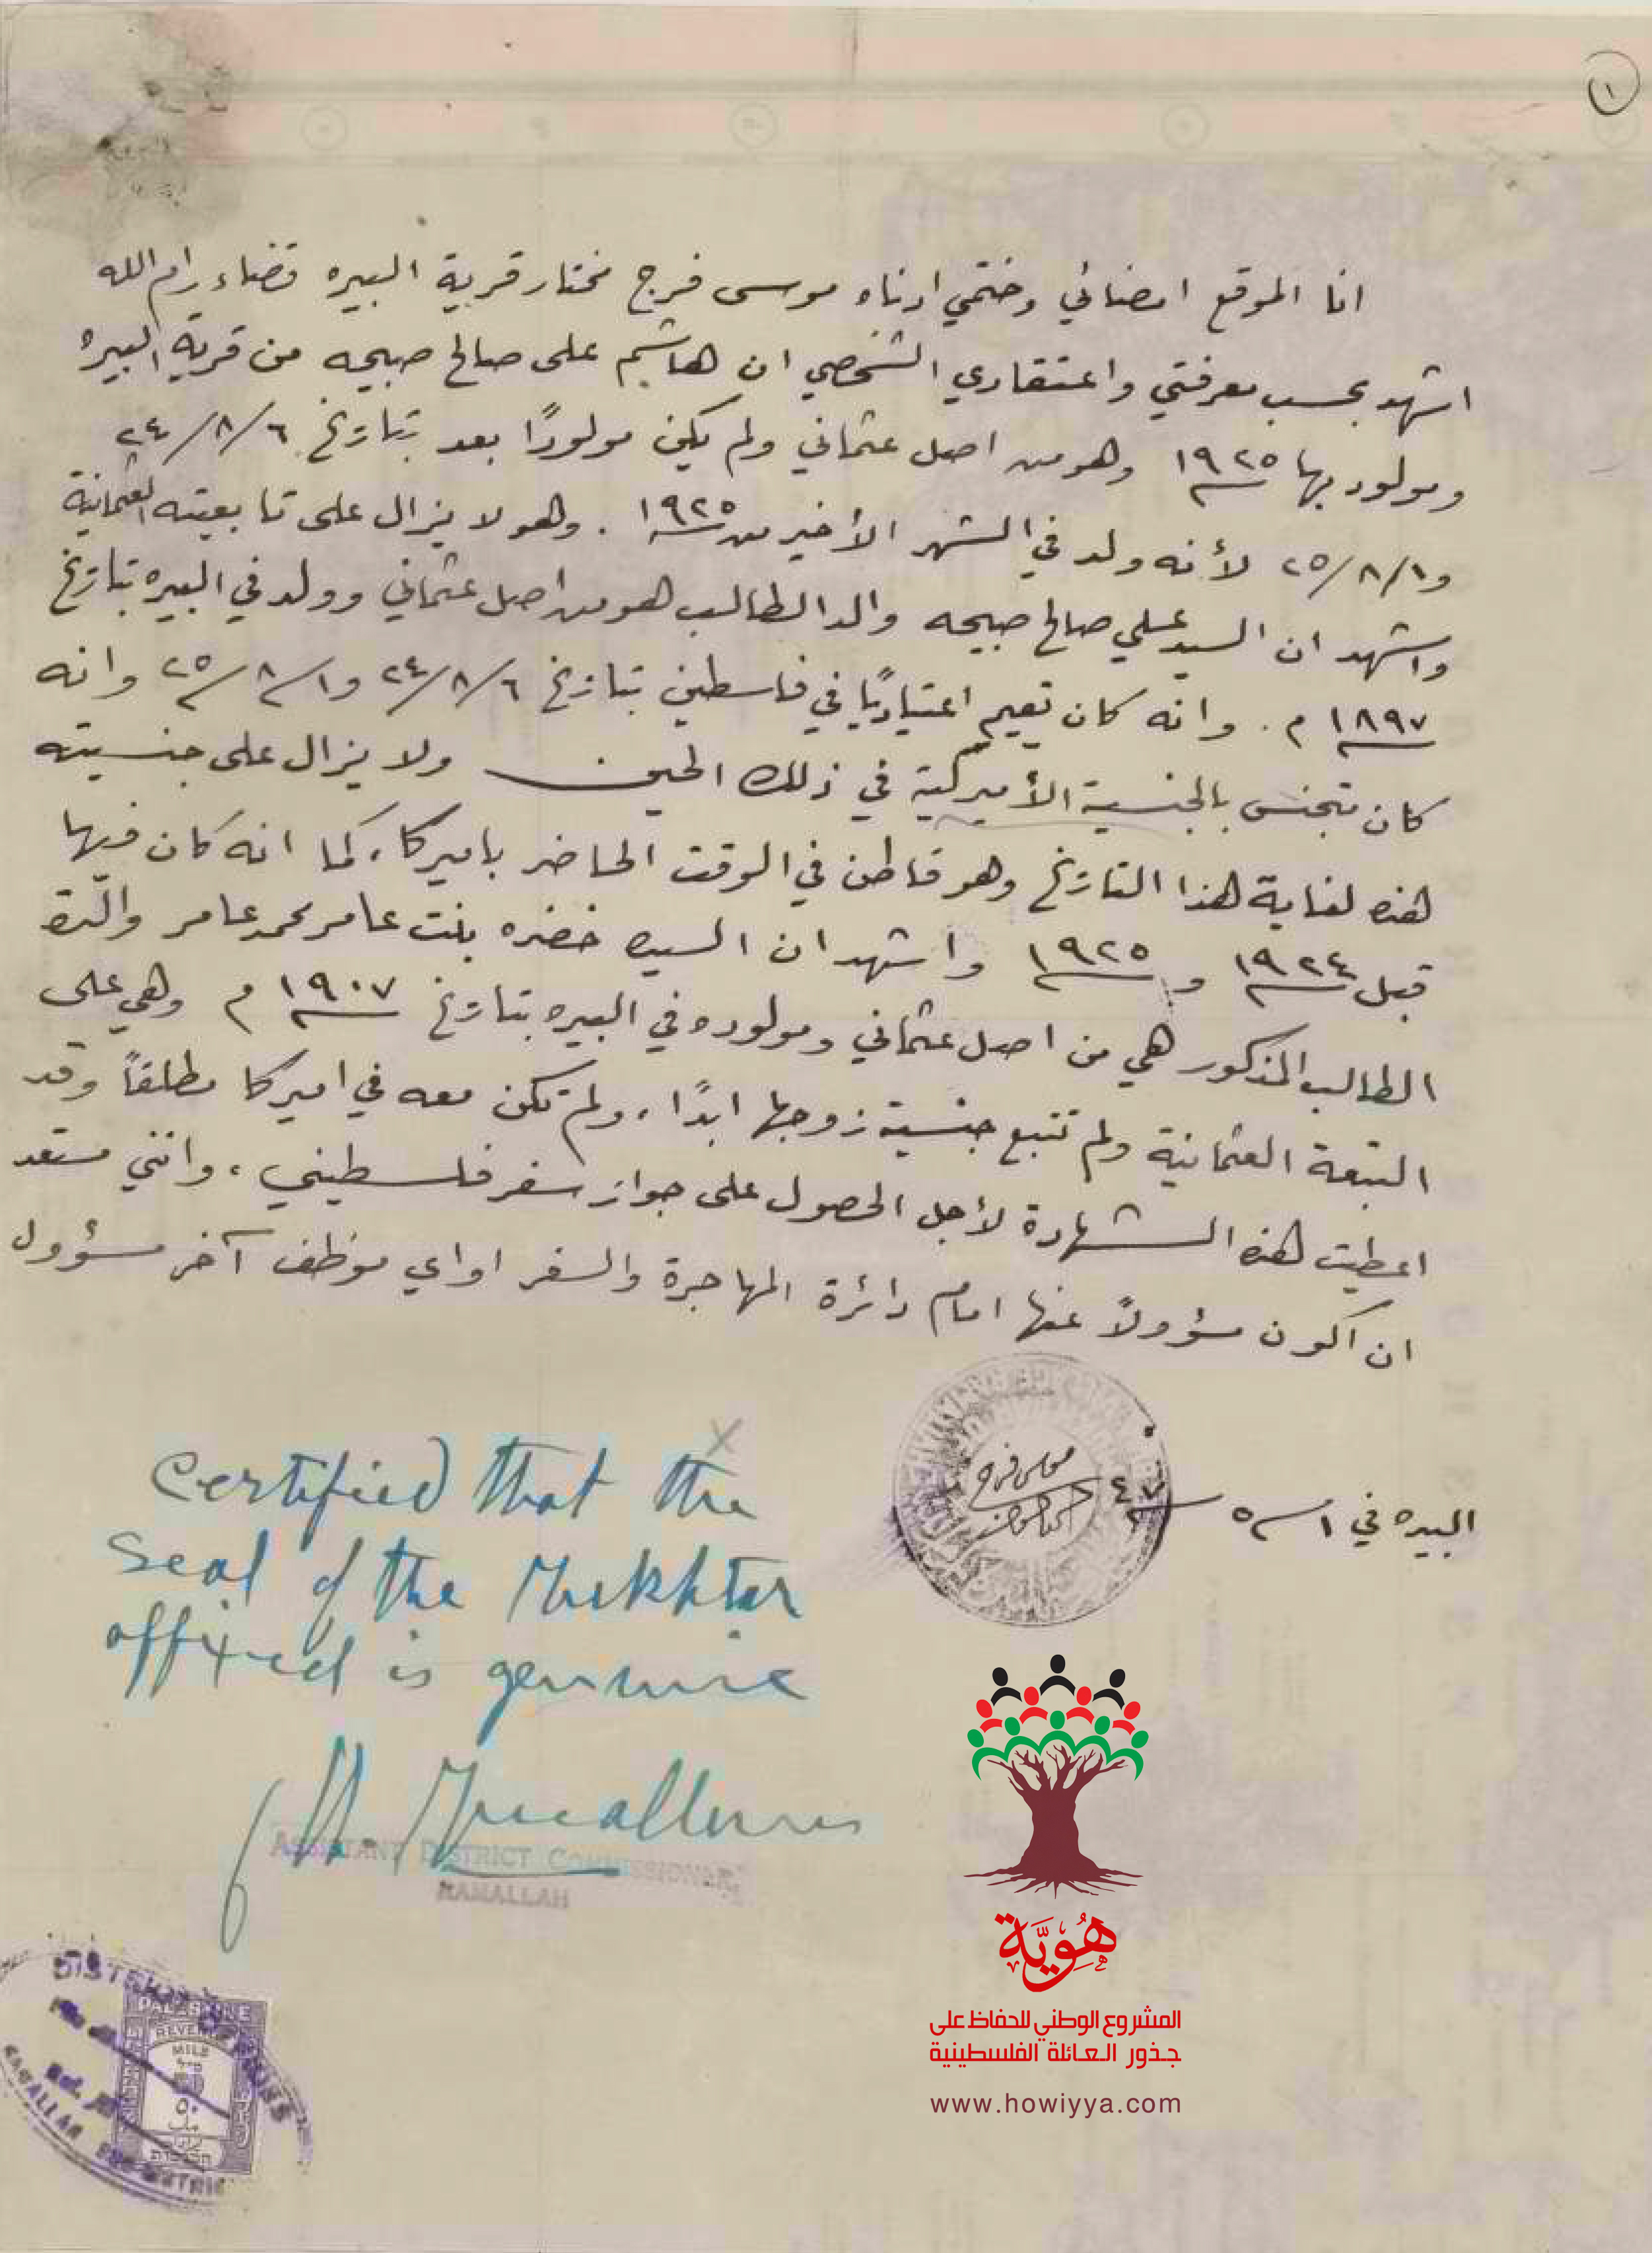 ١
انا الموقع امضائي وختمي ادناه موسى فرج مختار قرية البيره قضاء رام الله
اشهد بحسب معرفتي واعتقادي الشخصي ان هاشم على صالح صبيحه من قرية البيره
ومولود بها ١٩٢٥ وهو من اصل عثماني ولم يكن مولودًا بعد بتاريخ ٢٤/٨/٦
و١/٨/٢٥ لأنه ولد في الشهر الأخير من ١٩٢٥ . وهو لا يزال على تابعيته العثمانية
واشهد ان السيد علي صالح صبيحه والد الطالب هو من اصل عثماني وولد في البيره بتاريخ
١٨٩٧ م . وانه كان يقيم اعتياديًا في فلسطين بتاريخ ٢٤/٨/٦ و١/٨/٢٥ وانه
كان متجنس بالجنسية الأميركية في ذلك الحين ولا يزال على جنسيته
هذه لغاية هذا التاريخ وهو قاطن في الوقت الحاضر باميركا، كما انه كان فيها
قبل ١٩٢٤ و ١٩٢٥ واشهد ان السيده خضره بنت عامر محمد عامر والدة
الطالب المذكور هي من اصل عثماني ومولوده في البيره بتاريخ ١٩٠٧ م وهي على
التبعة العثمانية ولم تتبع جنسية زوجها ابدًا، ولم تكن معه في اميركا مطلقاً وقد
اعطيت هذه الشهادة لأجل الحصول على جواز سفر فلسطيني، وانني مستعد
ان اكون مسؤولاً عنها امام دائرة المهاجرة والسفر او اي موظف آخر مسؤول
البيره في ١/٥/٤٧
موسى فرج
Certified that the
seal of the Mukhtar
affixed is genuine
ASSISTANT DISTRICT COMMISSIONER,
RAMALLAH
PALESTINE
REVENUE
MILS
٥٠
RAMALLAH SUB-DISTRICT
هُوِيَّة
المشروع الوطني للحفاظ على
جذور العائلة الفلسطينية
www.howiyya.com